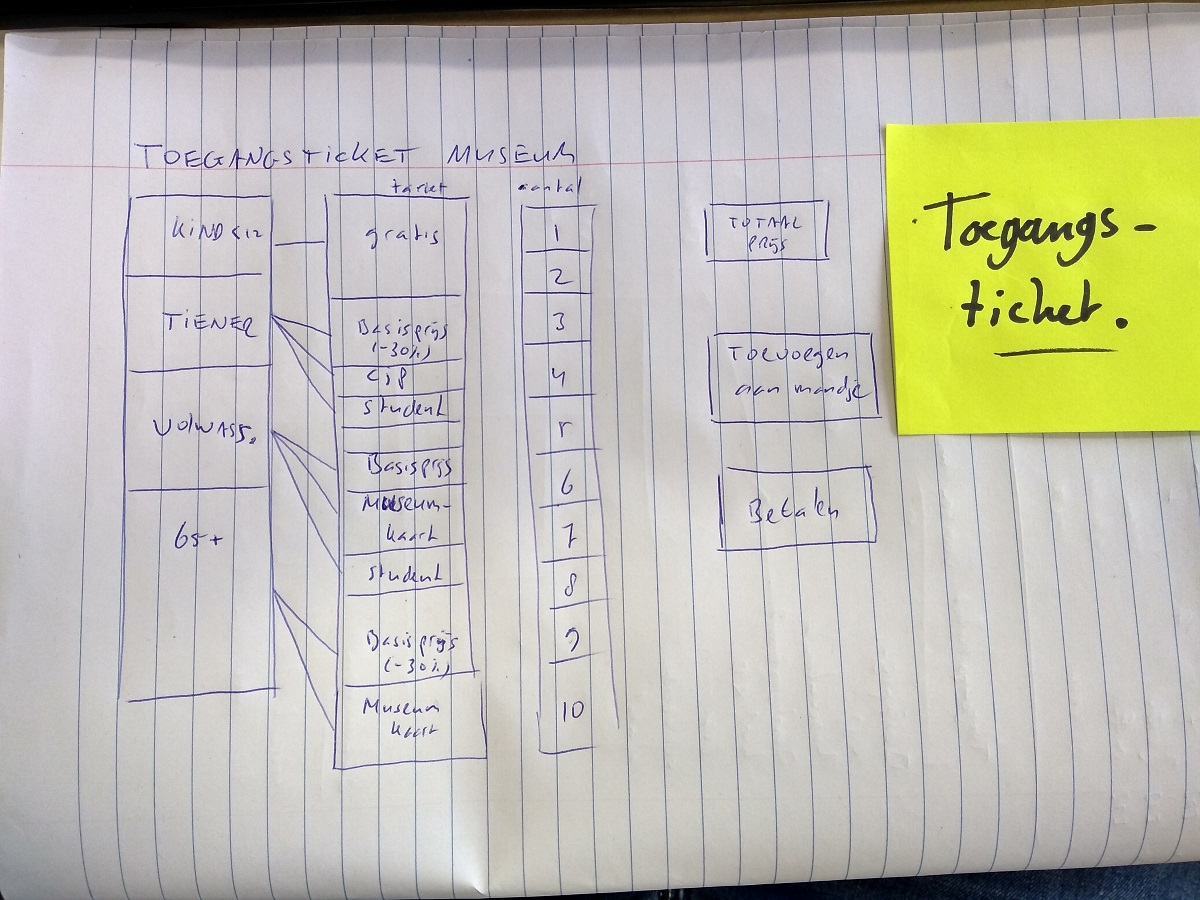 TOEGANGSTICKET MUSEUM
tarief
aantal
KIND <12
TIENER
VOLWASS.
65+
gratis
Basisprijs
(-30%)
CJP
student
Basisprijs
Museum-
kaart
student
Basisprijs
(-30%)
Museum
kaart
1
2
3
4
5
6
7
8
9
10
TOTAAL
PRIJS
Toevoegen
aan mandje
Betalen
Toegangs-
ticket.